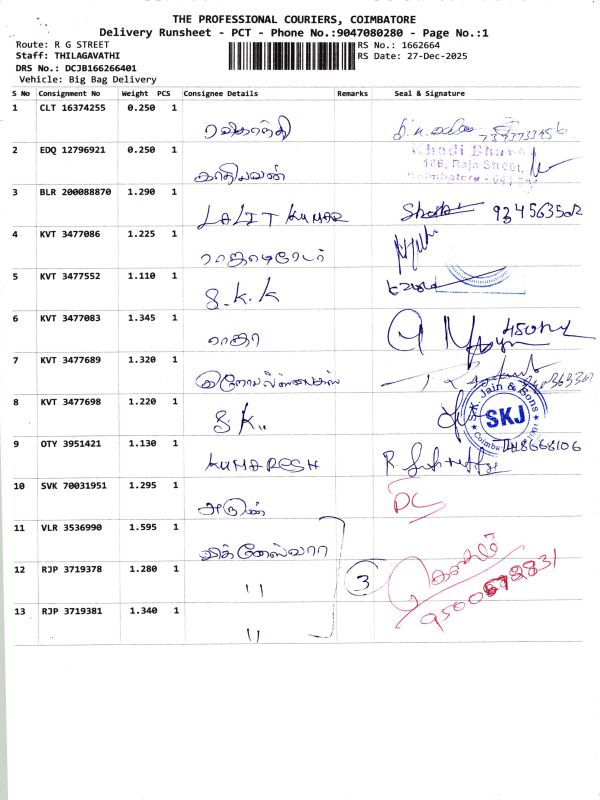 THE PROFESSIONAL COURIERS, COIMBATORE
Delivery Runsheet - PCT - Phone No.:9047080280 - Page No.:1
Route: R G STREET
RS No.: 1662664
Staff: THILAGAVATHI
RS Date: 27-Dec-2025
DRS No.: DCJB166266401
Vehicle: Big Bag Delivery
S No Consignment No Weight PCS Consignee Details Remarks Seal & Signature
1 CLT 16374255 0.250 1
2 EDQ 12796921 0.250 1 Khadi
காதியவன் 166, Raja Street,
Coimbatore
3 BLR 200088870 1.290 1
LALIT KUMAR
4 KVT 3477086 1.225 1
5 KVT 3477552 1.110 1
S.K.K
6 KVT 3477083 1.345 1
ராஜா
7 KVT 3477689 1.320 1
8 KVT 3477698 1.220 1 S.K. Jain & Sons
S.K.. SKJ
9 OTY 3951421 1.130 1
KUMARESH
10 SVK 70031951 1.295 1
அருண் DC
11 VLR 3536990 1.595 1
விக்னேஸ்வரா
12 RJP 3719378 1.280 1 3
"
13 RJP 3719381 1.340 1
"